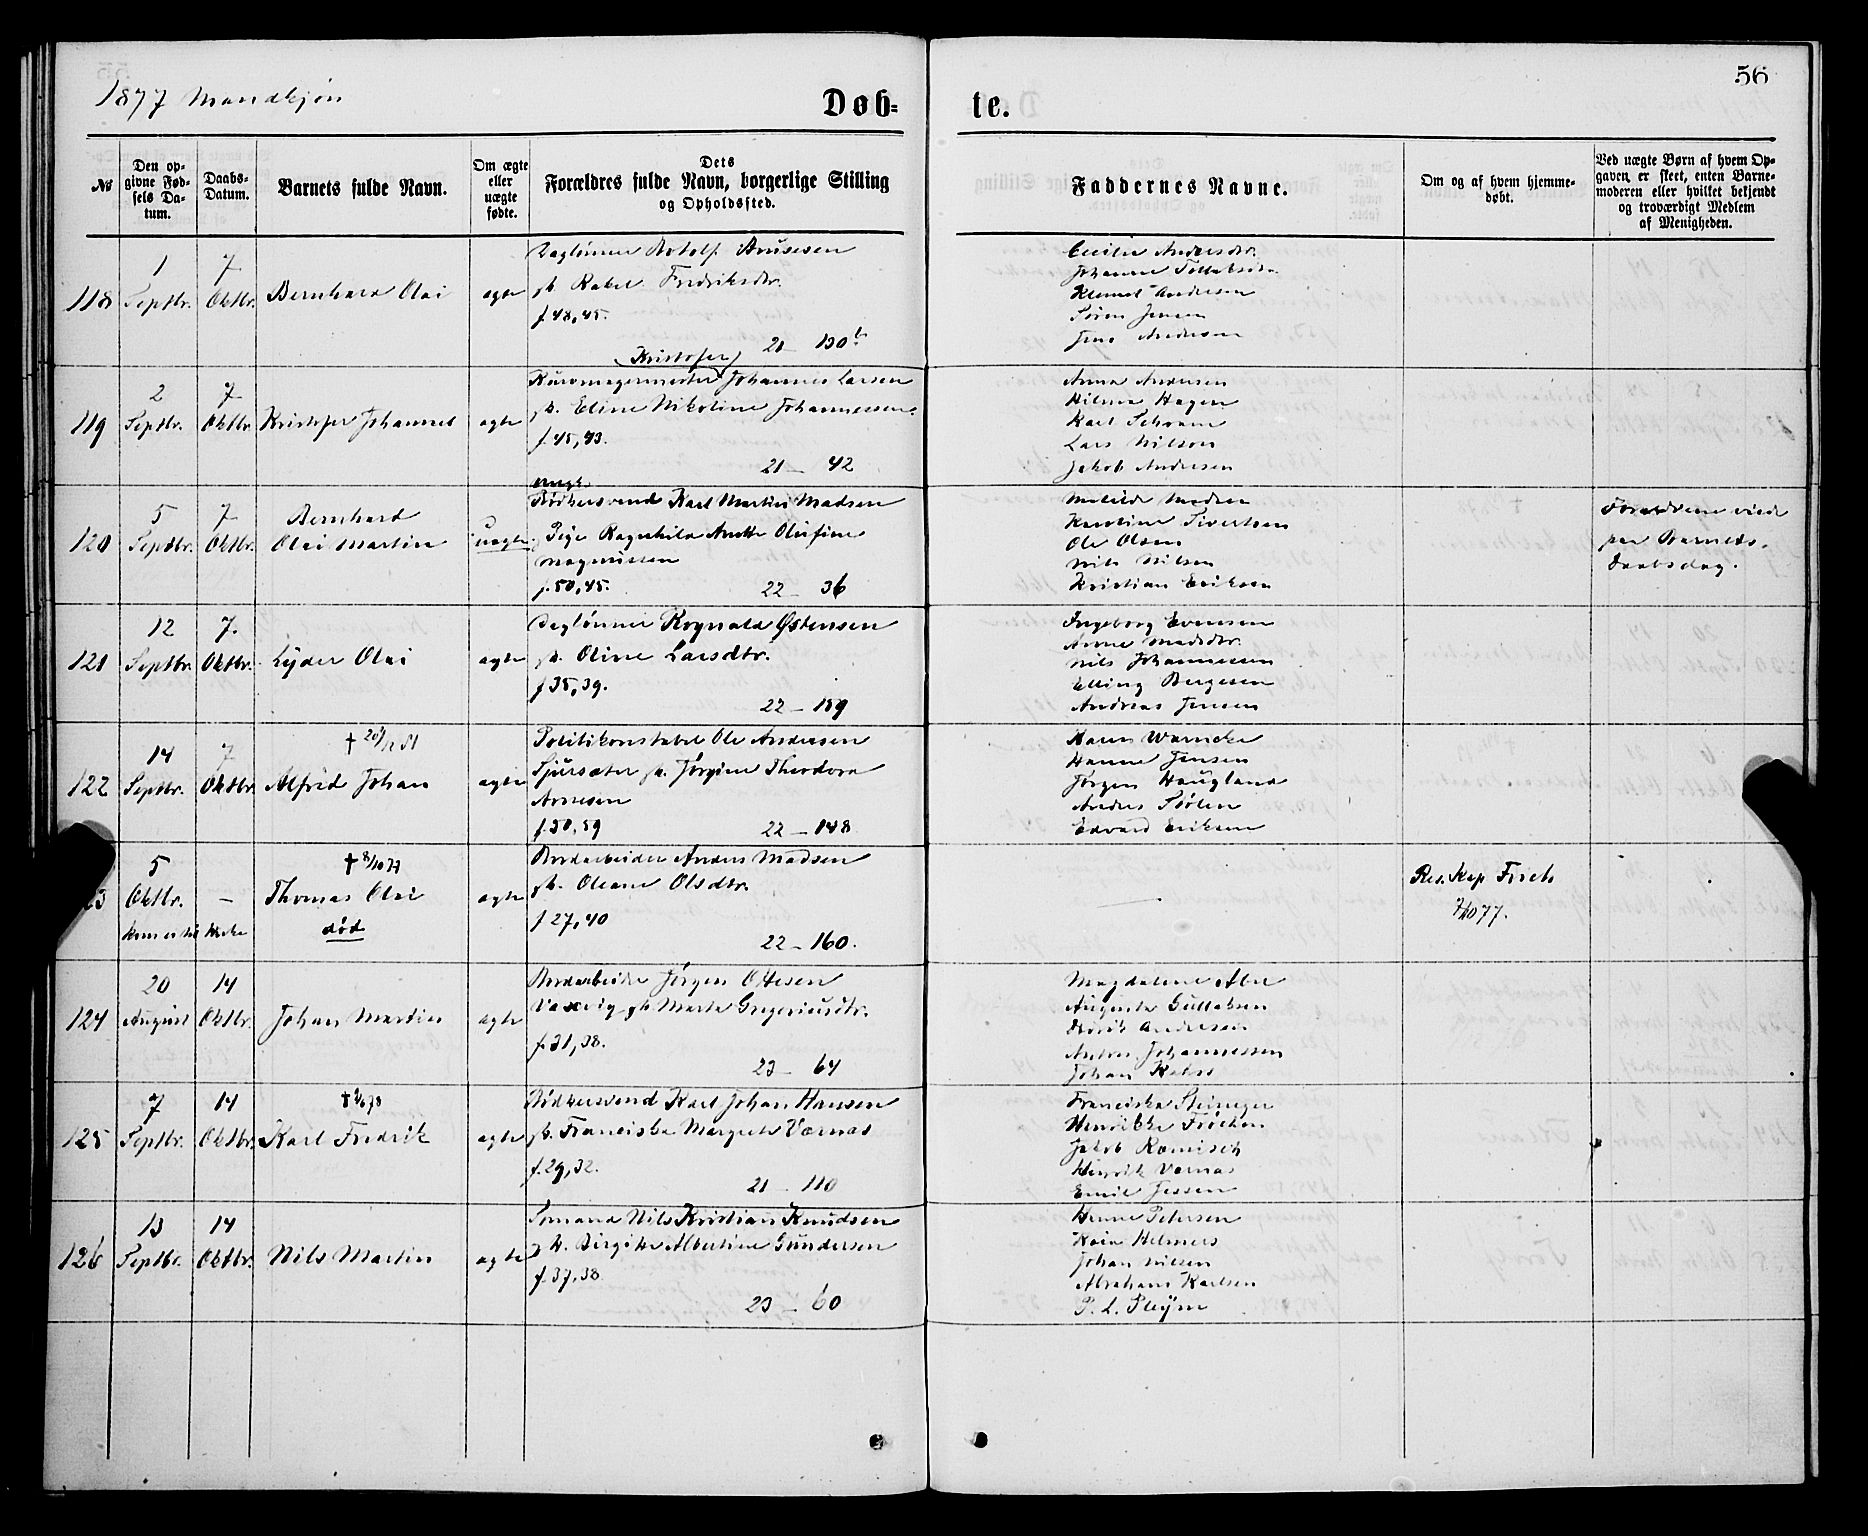 1877 Mandkjøn
56
Døb-
te.
№
Den op-
givne Fød-
sels Da-
tum.
Daabs-
Datum.
Barnets fulde Navn.
Om ægte
eller
uægte
fødte.
Dets
Forældres fulde Navn, borgerlige Stilling
og Opholdssted.
Faddernes Navne.
Om og af hvem hjemme-
døbt.
Ved uægte Børn af hvem Op-
gaven er skeet, enten Barne-
moderen eller hvilket bekjendt
og troværdigt Medlem
af Menigheden.
118
1
Septbr.
7
Oktbr.
Bernhard Olai
ægte
Daglønner Botolf
Rakel Fredriksdtr.
f. 48, 45.
21 – 130 b
Cecilie Andersdtr.
Johanne
Klemet Andersen
Søren Jensen
Jens Andersen
119
2
Septbr.
7
Oktbr.
Kristofer Johannes
ægte
(Kristofer)
Johannes Larsen
Eline Nikoline Johannessen
f. 45, 43.
21 – 42
Anna Andersen
Hilma Hagen
Karl Schram
Lars Nilsen
Jakob Andersen
120
5
Septbr.
7
Oktbr.
Bernhard
Olai Martin
uægte
ungk.
Bødkersvend Karl Martin Madsen
Pige Ragnhild Anette Olufine
Magnussen
f. 50, 45.
22 – 36
Matilde Madsen
Karoline Sivertsen
Ole Olsen
Nils Nilsen
Kristian Eriksen
Forældrene viede
paa Barnets
Daabsdag.
121
12
Septbr.
7.
Oktbr.
Lyder Olai
ægte
Daglønner Rognald Østensen
Oline Larsdtr.
f 35, 39.
22 – 159
Ingeborg Evensen
Anne Madsdtr.
Nils Johannessen
Elling Bergesen
Andreas Jensen
122
14
Septbr.
7
Oktbr.
† 20/12 81
Alfred Johan
ægte
Politikonstabel Ole Andersen
Sjursæter Jørgine Theodora
Arnesen
f. 50, 59
22 – 148
Karen Warncke
Hanne Jensen
Jørgen Haugland
Anders Sørlen
Edvard Eriksen
5
Oktbr.
–
† 8/10 77
Thomas Olai
død
ægte
Jordarbeider Anders Madsen
Oleane Olsdtr.
f 27, 40
22 – 160.
Res. Kap Frich
7/10 77.
124
20
August
14
Oktbr.
Johan Martin
ægte
Jordarbeider Jørgen Ottesen
Marta Gregoriusdtr.
f. 31, 38.
23 – 64
Magdalene
Augusta Gullaksen
Andersen
Anders Johannessen
Johan
125
7
Septbr.
14
Oktbr.
Karl Fredrik
ægte
Bødkersvend Karl Johan Hansen
Franciska Margrete Værnæs
f. 29, 32.
21 – 110
Franciska Steineger
Henrikke Frøchen
Jakob Ræmisch
Henrik Værnæs
Emil Jessen
126
13
Septbr.
14
Oktbr.
Nils Martin
ægte
Sømand Nils Kristian Knudsen
Birgitte Albertine Gundersen
f. 37, 38.
23 – 60
Hanne Petersen
Helmers
Johan Nilsen
Abraham Karlsen
P. L. Pleym